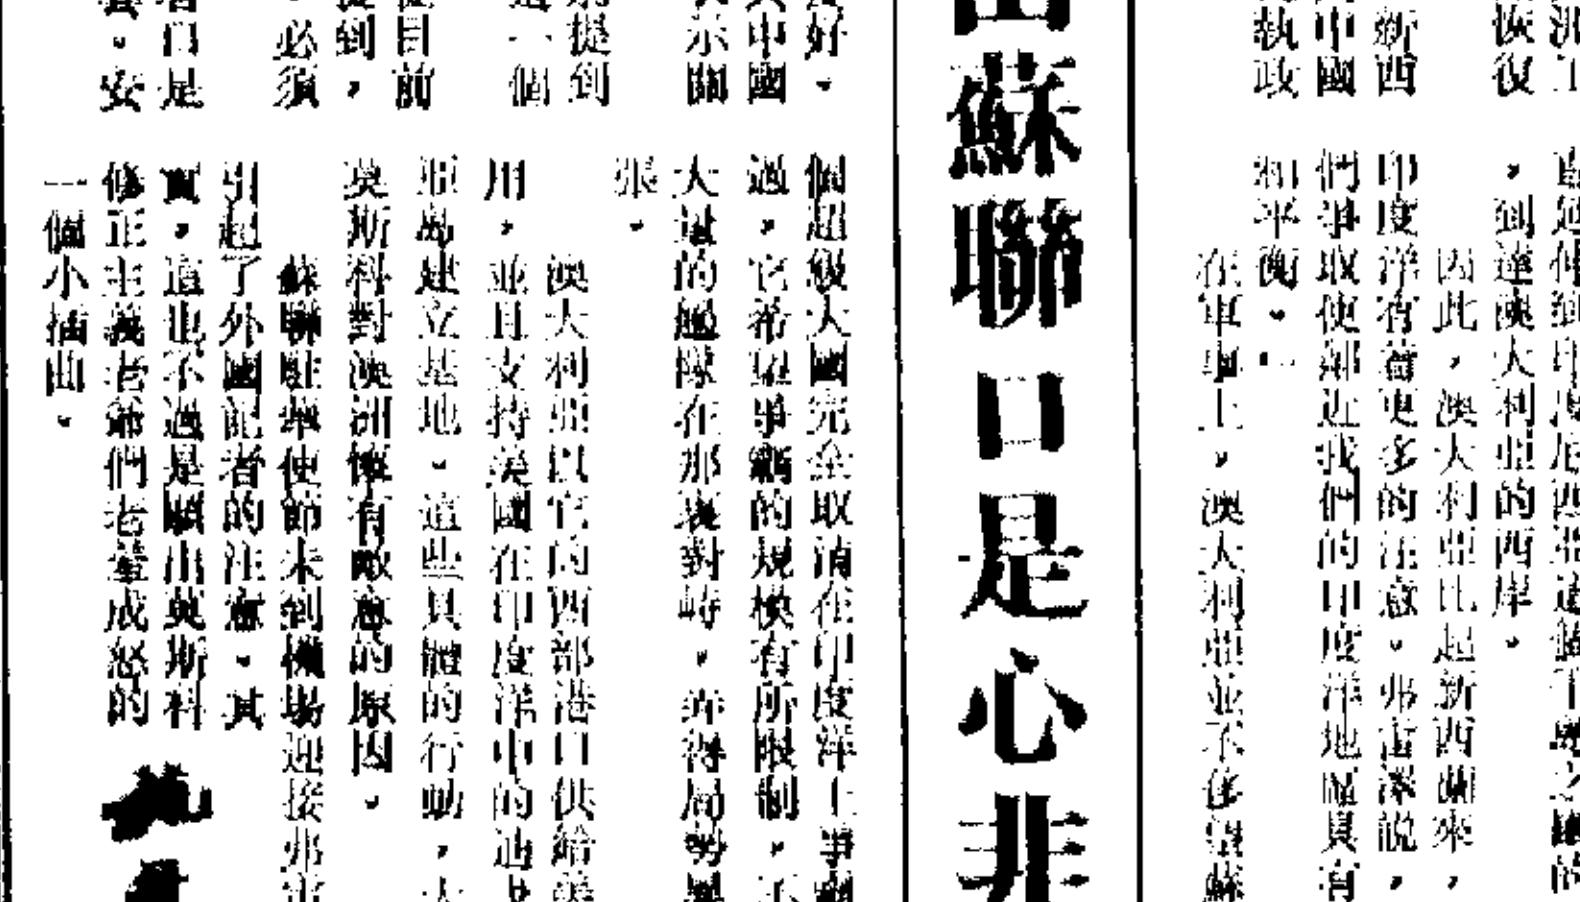 恢復
新西
中國
執政
，到達澳大利亞的西岸。
因此，澳大利亞比起新西蘭來，
印度洋有着更多的注意。弗雷澤說，
們爭取使鄰近我們的印度洋地區具有
和平衡。
在軍事上，澳大利亞並不多
蘇聯口是心非
好。
中國
示關
提到
一個
目前
到，
必須
是
。安
個超級大國完全取消在印度洋上事
過，它希望爭霸的規模有所限制，不
大量的艦隊在那裏對峙，弄得局勢
張。
澳大利亞以它的西部港口供給美
用，並且支持美國在印度洋中的迪
亞島建立基地。這些具體的行動，大
莫斯科對澳洲懷有敵意的原因。
蘇聯駐華使節未到機場迎接弗雷
引起了外國記者的注意。其
實，這也不過是顯出莫斯科
修正主義老爺們老羞成怒的
一個小插曲。